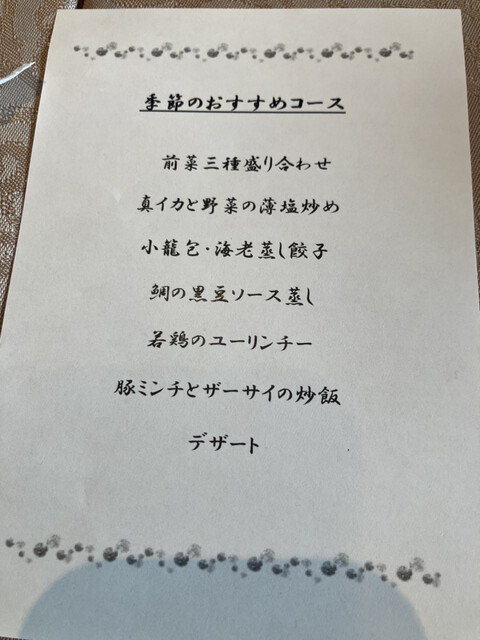 季節のおすすめコース
前菜三種盛り合わせ
真イカと野菜の薄塩炒め
小籠包・海老蒸し餃子
鯛の黒豆ソース蒸し
若鶏のユーリンチー
豚ミンチとザーサイの炒飯
デザート